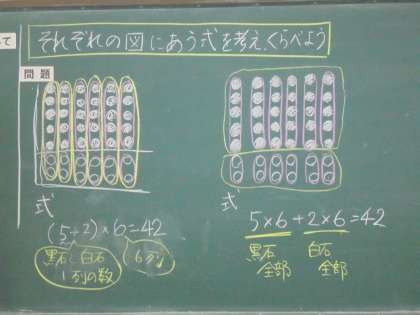 それぞれの図にあう式を考え、くらべよう
問題
式
(5+2)×6=42
黒石 白石
1列の数
6列
式
5×6+2×6=42
黒石
全部
白石
全部